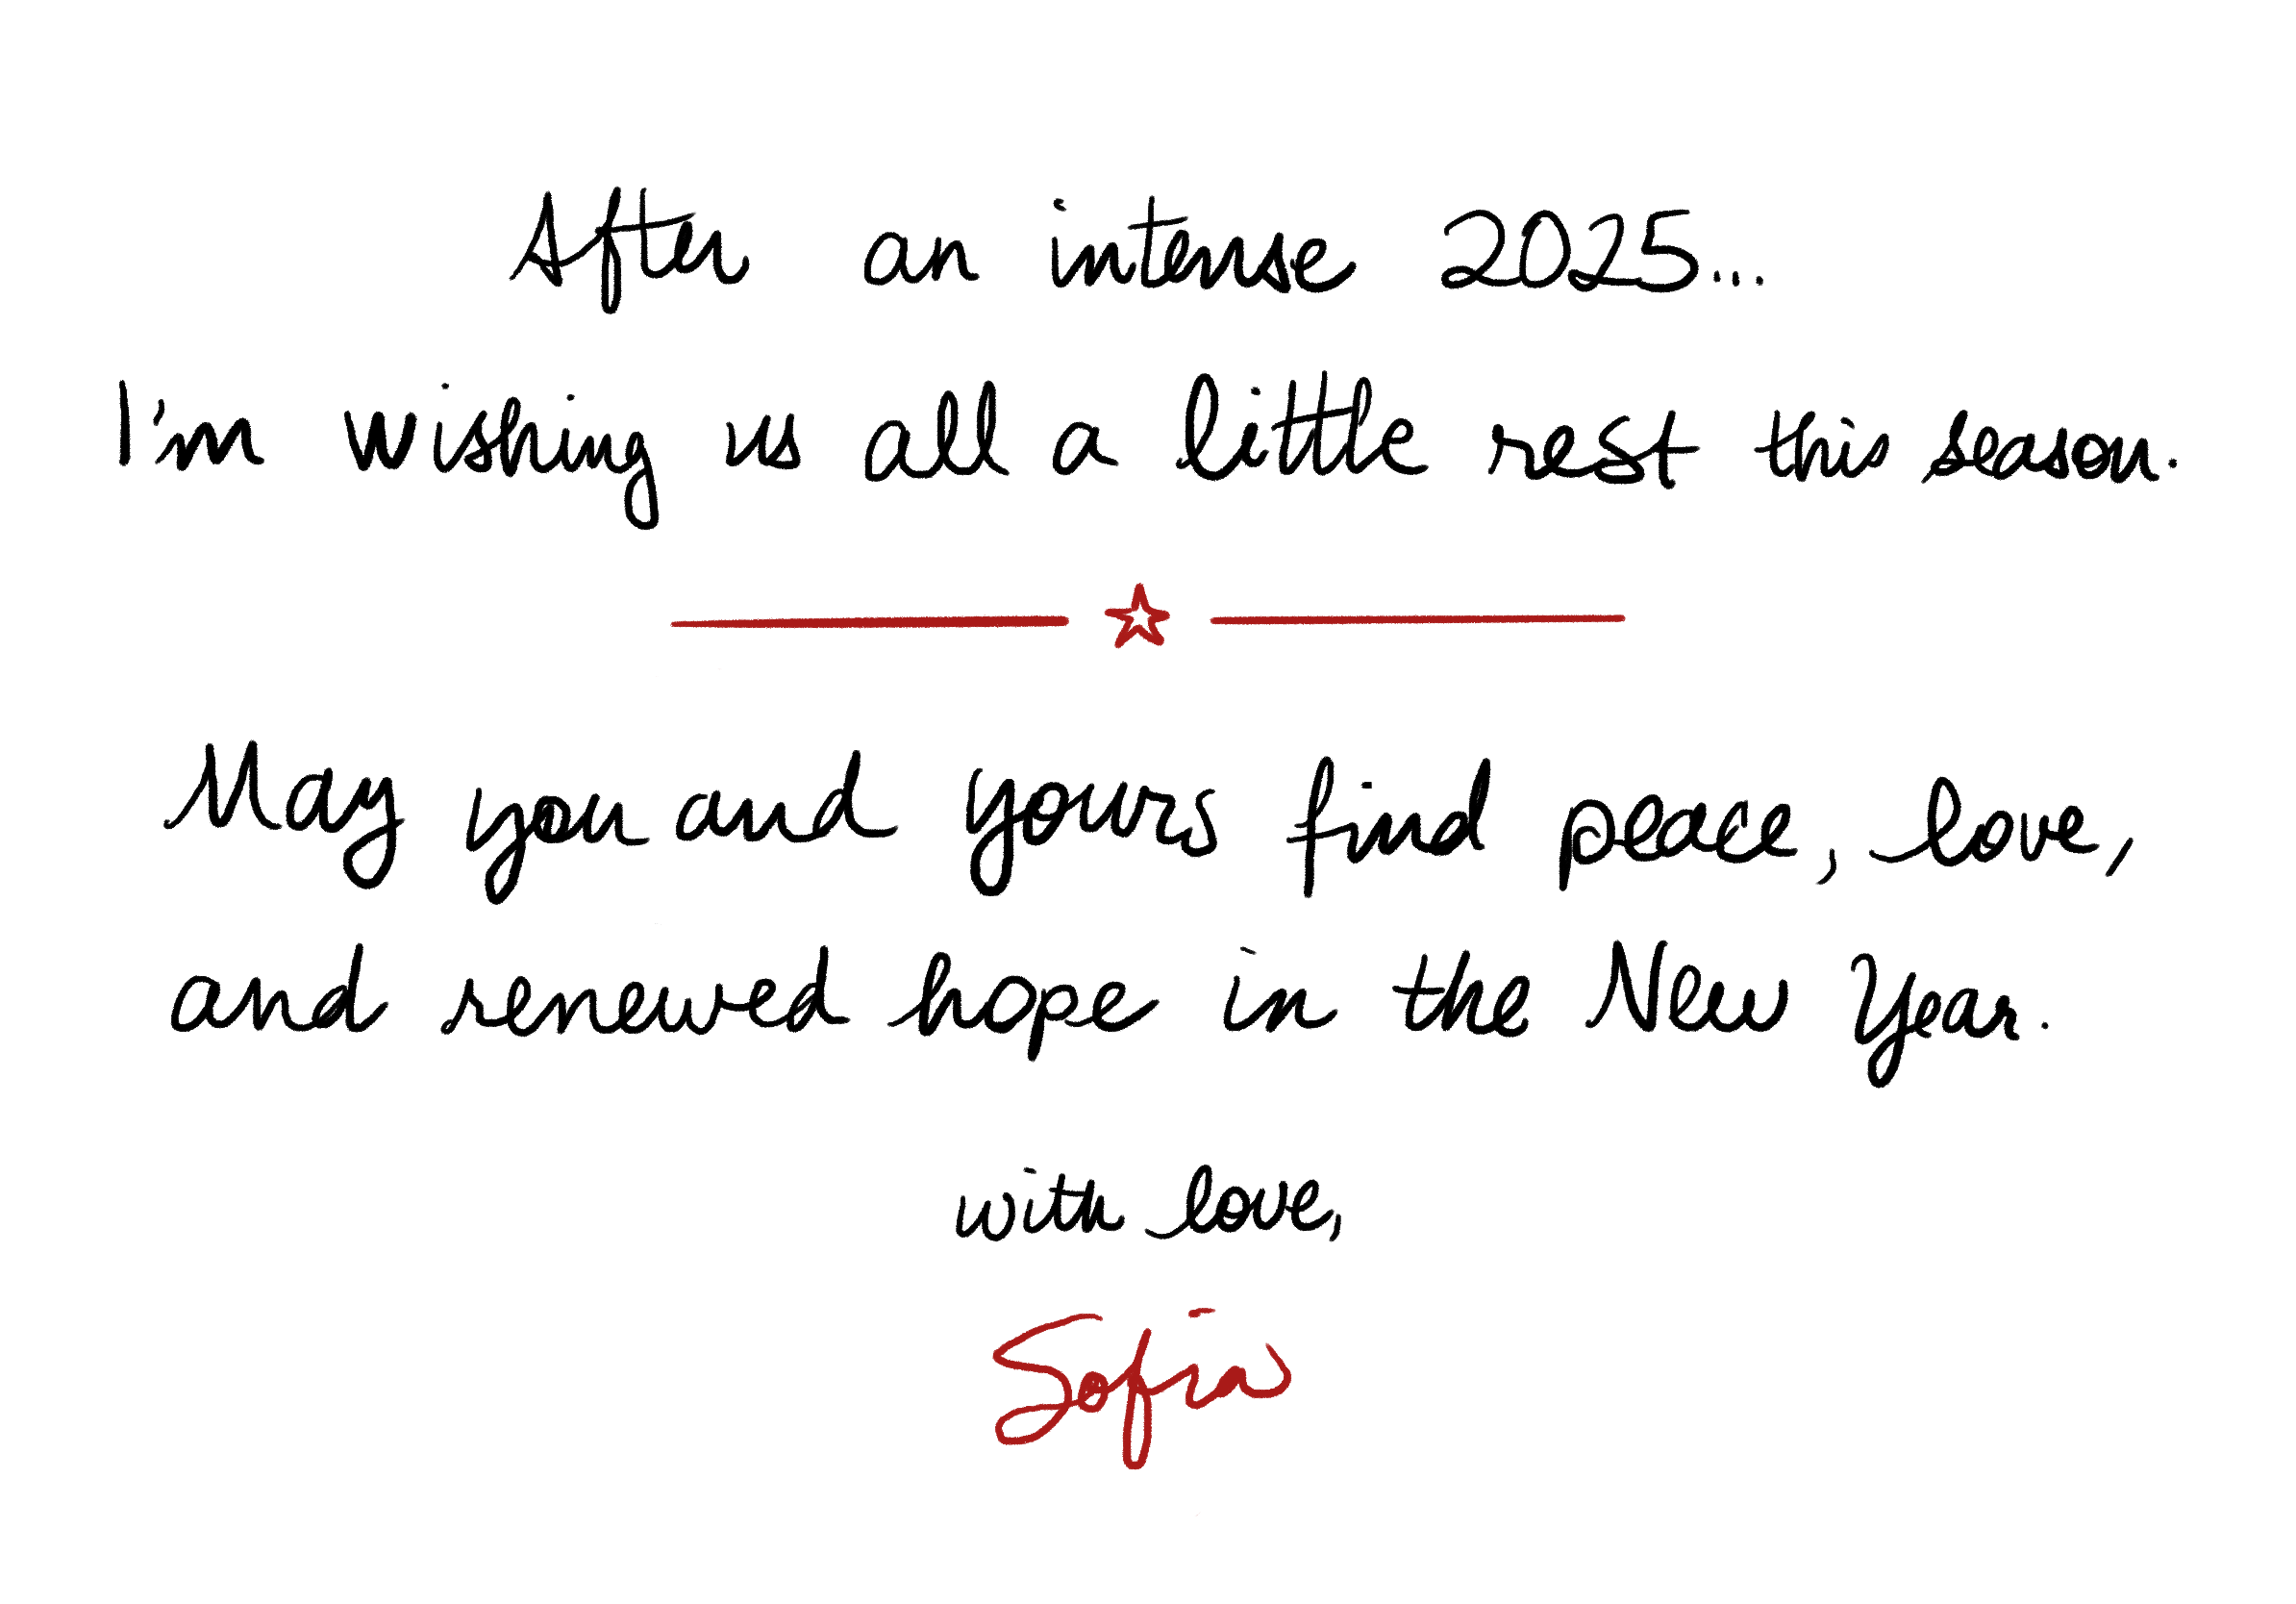 After an intense 2025...
I'm wishing us all a little rest this season.
May you and yours find peace, love,
and renewed hope in the New Year.
with love,
Sofia